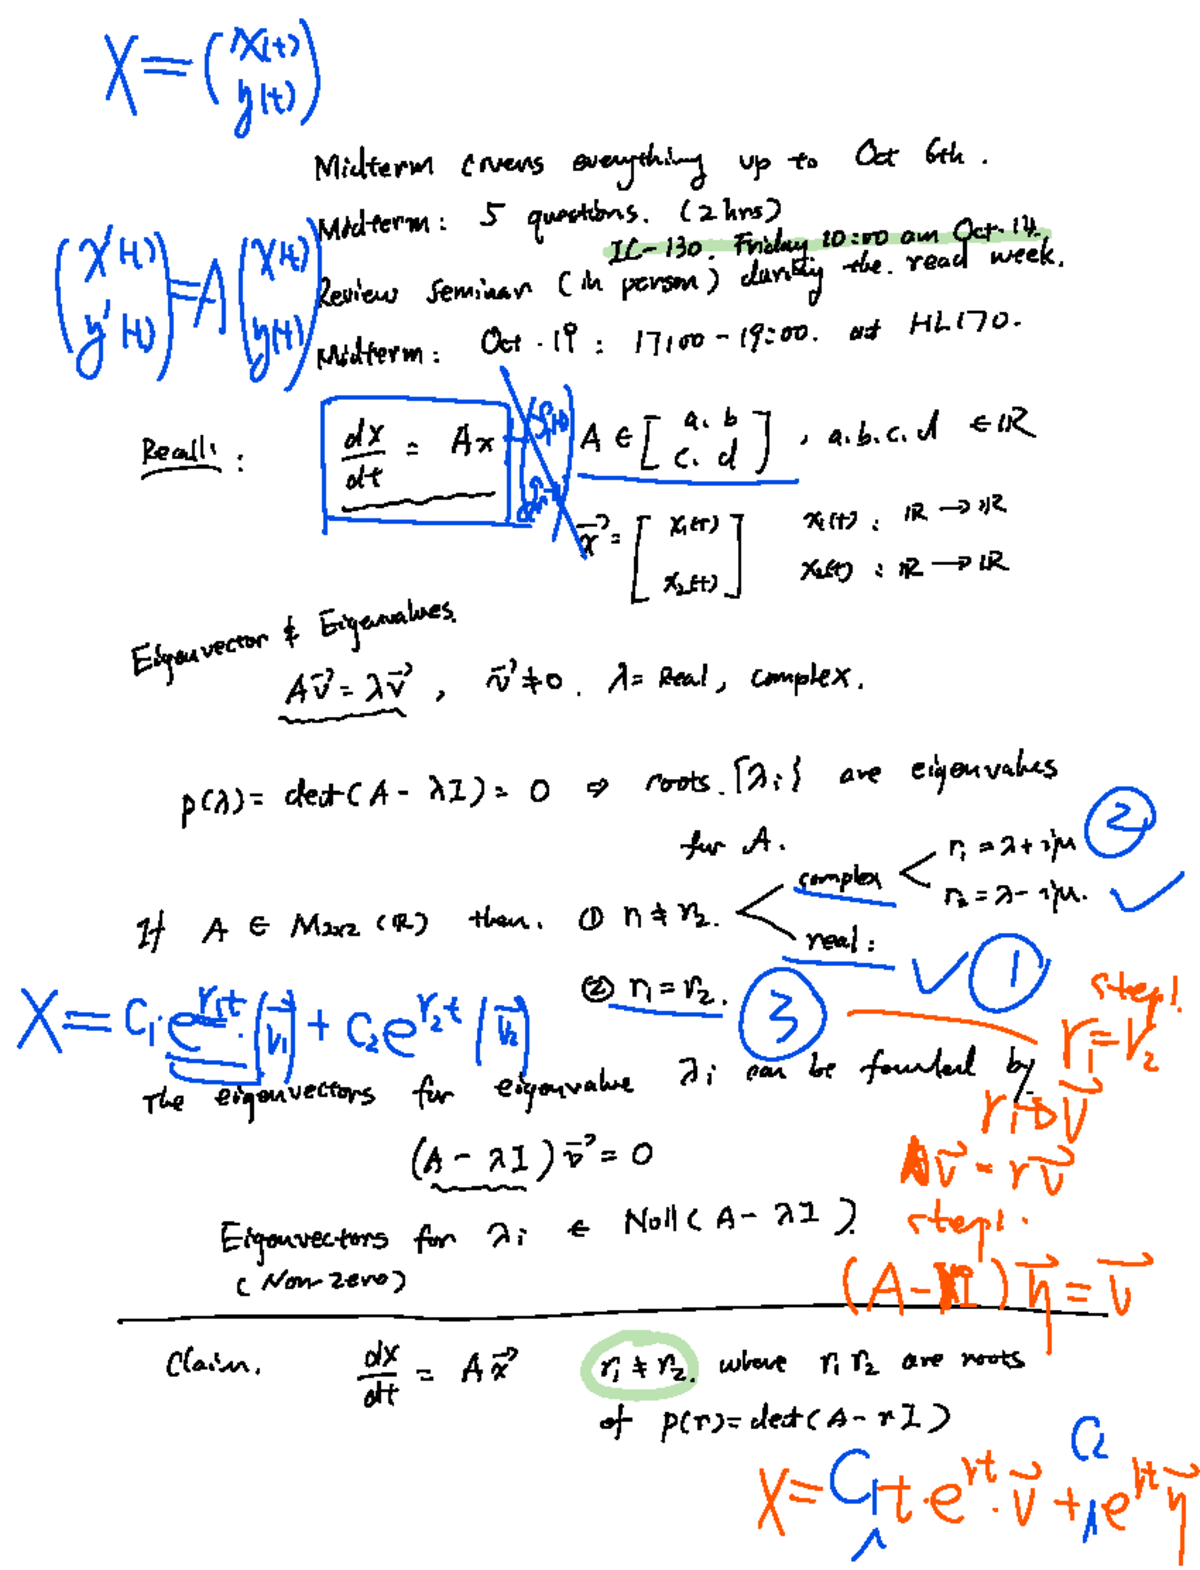 X = ( x(t)
y(t) )
Midterm covers everything up to Oct 6th.
Midterm: 5 questions. (2 hrs)
IC-130. Friday 10:00 am Oct. 14.
( x'(t)
y'(t) ) = A ( x(t)
y(t) )
Review seminar (in person) during the read week.
Midterm: Oct. 19: 17:00 - 19:00. at HL170.
Recall:
dx/dt = Ax
A ∈ [ a. b
c. d ], a.b.c.d ∈ ℝ
x⃗ = [ x₁(t)
x₂(t) ]
x₁(t) : ℝ → ℝ
x₂(t) : ℝ → ℝ
Eigenvector & Eigenvalues.
Av⃗ = λv⃗, v⃗ ≠ 0. λ = Real, complex.
p(λ) = det(A - λI) = 0 ⇒ roots. {λi} are eigenvalues
for A.
complex r₁ = λ + iμ ②
r₂ = λ - iμ. ✓
If A ∈ M2x2 (ℝ) then. ① r₁ ≠ r₂.
real: ✓ ①
② r₁ = r₂. ③
X = C₁·e^{r₁t}·(v⃗₁) + C₂e^{r₂t}(v⃗₂)
step1.
r₁ = r₂
The eigenvectors for eigenvalue λi can be founded by
r₁→v⃗
(A - λI)v⃗ = 0
Av⃗ = rv⃗
step1.
Eigenvectors for λi ∈ Null(A - λI).
(Non-zero)
(A - rI) η⃗ = v⃗
Claim. dx/dt = Ax⃗ r₁ ≠ r₂. where r₁ r₂ are roots
of p(r) = det(A - rI)
X = C₁t·e^{rt}·v⃗ + C₂e^{rt}η⃗